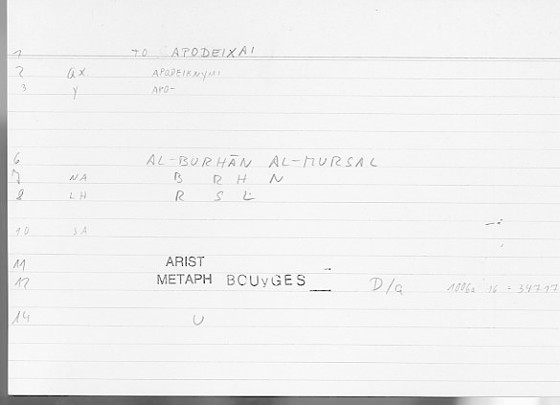 1 TO APODEIXAI
2 ax APODEIKNYNI
3 y APO-
6 AL-BURHĀN AL-MURSAL
7 NA B R H N
8 LH R S L
10 SA
11 ARIST
12 METAPH BOUyGES D/a 1006a 16 - 34717
14 U